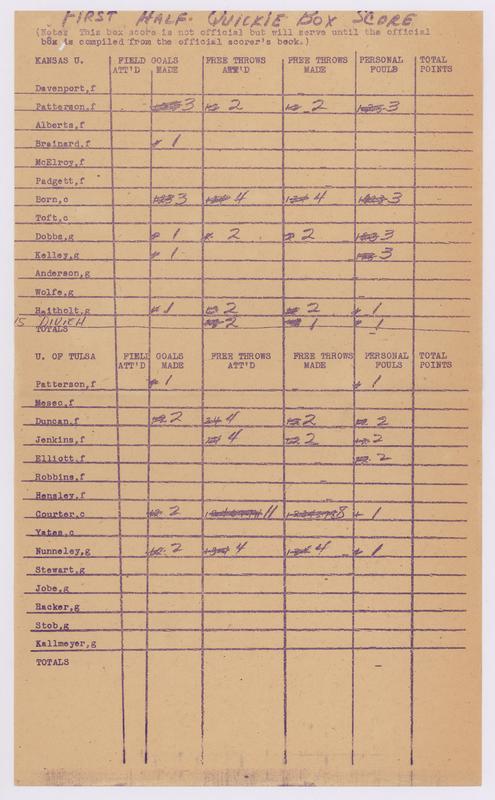 FIRST HALF- QUICKIE BOX SCORE
(Note: This box score is not official but will serve until the official
box is compiled from the official scorer's book.)
KANSAS U. FIELD GOALS FREE THROWS FREE THROWS PERSONAL TOTAL
ATT'D MADE ATT'D MADE FOULS POINTS
Davenport,f
Patterson,f 3 2 2 3
Alberts,f
Brainard,f 1
McElroy,f
Padgett,f
Born,c 3 4 4 3
Toft,c
Dobbs,g 1 2 2 3
Kelley,g 1 3
Anderson,g
Wolfe,g
Heitholt,g 1 2 2 1
15 DIVICH 2 1 1
TOTALS
U. OF TULSA FIELD GOALS FREE THROWS FREE THROWS PERSONAL TOTAL
ATT'D MADE ATT'D MADE FOULS POINTS
Patterson,f 1 1
Mesec,f
Duncan,f 2 4 2 2
Jenkins,f 4 2 2
Elliott,f 2
Robbins,f
Hensley,f
Courter,c 2 11 8 1
Yates,c
Nunneley,g 2 4 4 1
Stewart,g
Jobe,g
Hacker,g
Stob,g
Kallmeyer,g
TOTALS